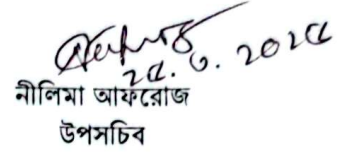 ২৫.৩.২০২৫
নীলিমা আফরোজ
উপসচিব